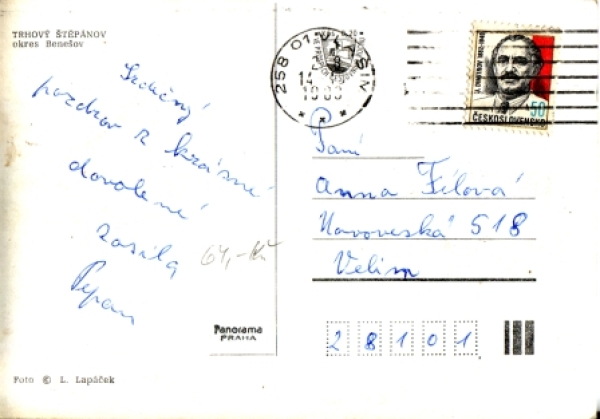 TRHOVÝ ŠTĚPÁNOV
okres Benešov
Srdečný
pozdrav z krásné
dovolené
zasílá
Pepan
64,- Kč
Panorama
PRAHA
Foto © L. Lapáček
258 01 V
ŠIM
50
ČESKOSLOVENSKO
Paní
Anna Fílová
Novoveská 518
Velim
28101